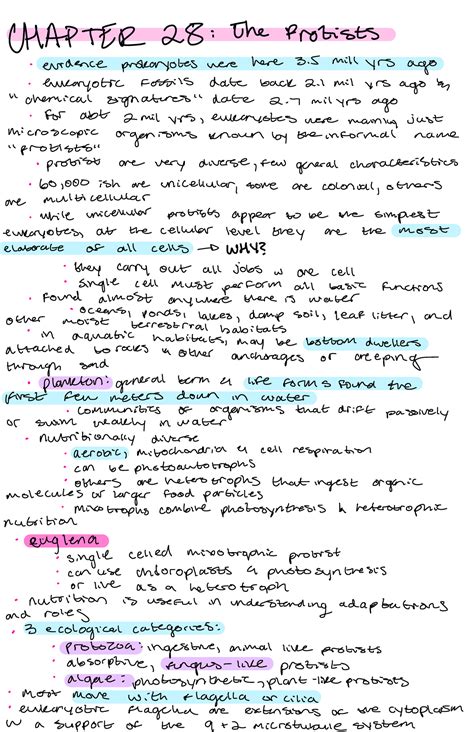 CHAPTER 28: The Protists
· evidence prokaryotes were here 3.5 mill yrs ago
· eukaryotic fossils date back 2.1 mil yrs ago &
"chemical signatures" date 2.7 mil yrs ago
· for abt 2 mil yrs, eukaryotes were mainly just
microscopic organisms known by the informal name
"protists"
· protist are very diverse, few general characteristics
· 60,000 ish are unicellular, some are colonial, others
are multicellular
· while unicellular protists appear to be the simplest
eukaryotes, at the cellular level they are the most
elaborate of all cells → WHY?
· they carry out all jobs w one cell
· single cell must perform all basic functions
· Found almost anywhere there is water
· oceans, ponds, lakes, damp soil, leaf litter, and
other moist terrestrial habitats
· in aquatic habitats, may be bottom dwellers
attached to rocks & other anchorages or creeping
through sand
· plankton: general term 4 life forms found the
first few meters down in water
· communities of organisms that drift passively
or swim weakly in water
· nutritionally diverse
· aerobic, mitochondria 4 cell respiration
· can be photoautotrophs
· others are heterotrophs that ingest organic
molecules or larger food particles
· mixotrophs combine photosynthesis & heterotrophic
nutrition
· euglena
· single celled mixotrophic protist
· can use chloroplasts 4 photosynthesis
· or live as a heterotroph
· nutrition is useful in understanding adaptations
and roles
· 3 ecological categories:
· protozoa: ingestive, animal like protists
· absorptive, fungus-like protists
· algae: photosynthetic, plant-like protists
· most move with flagella or cilia
· eukaryotic flagella are extensions of the cytoplasm
w a support of the 9+2 microtubule system